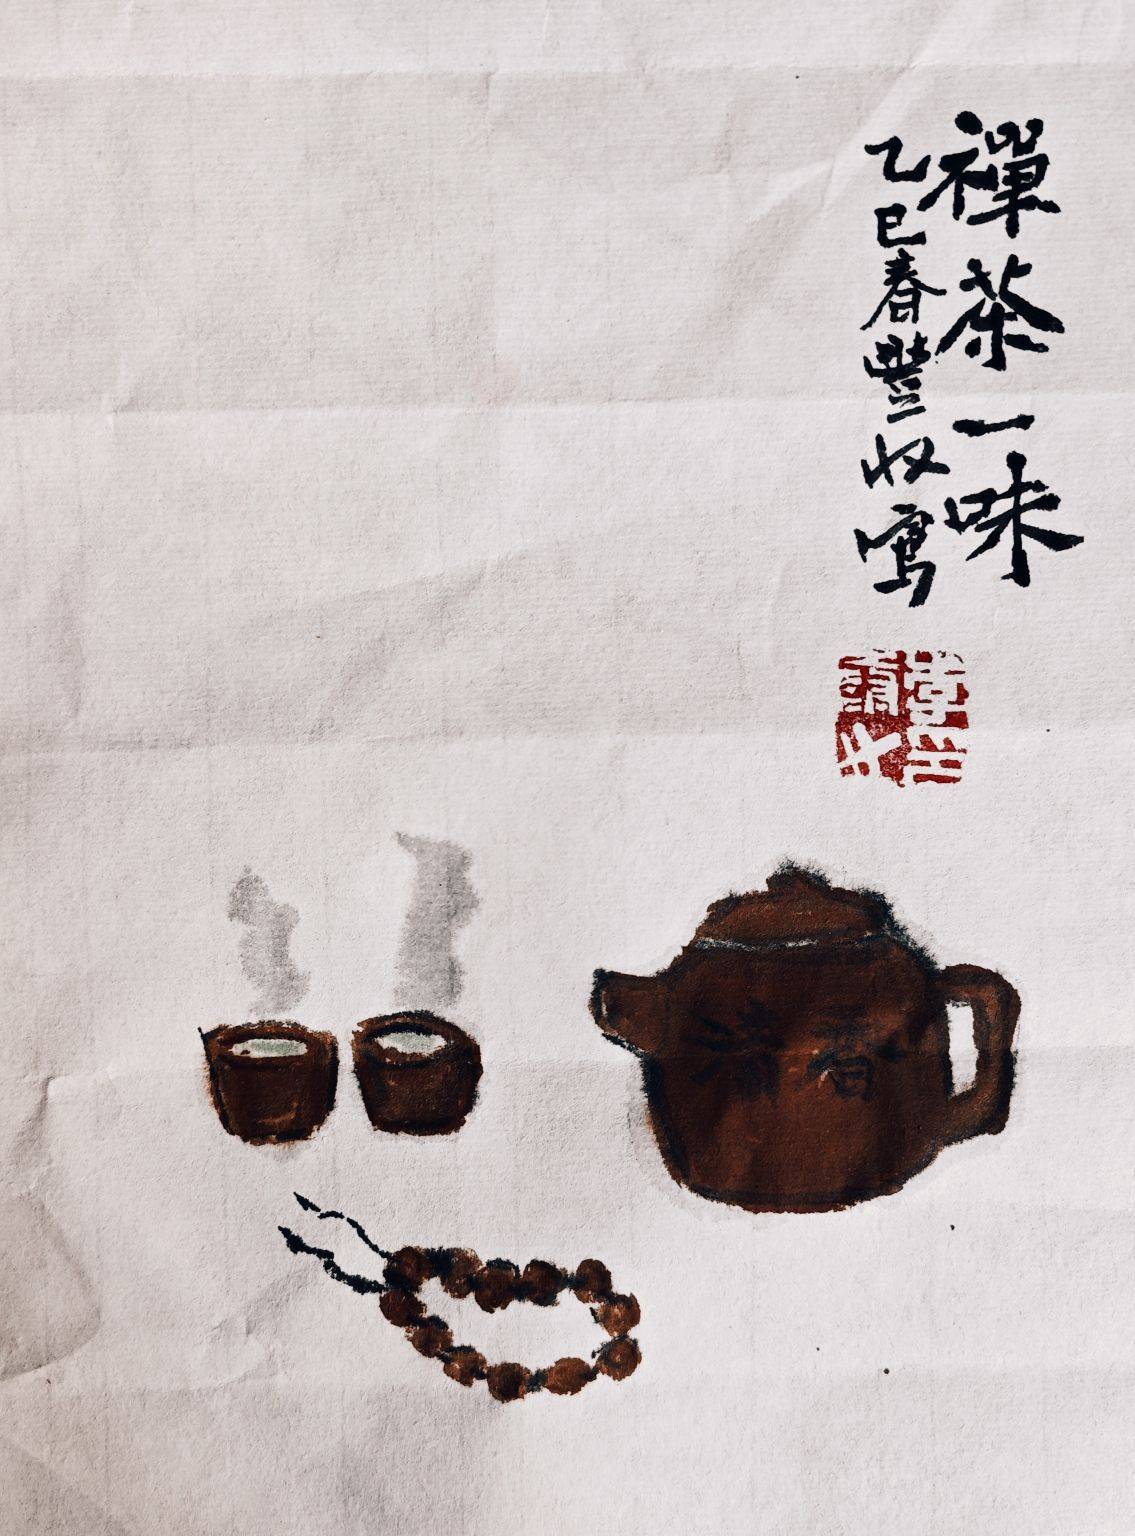 禪茶一味
乙巳春豐收寫
清香